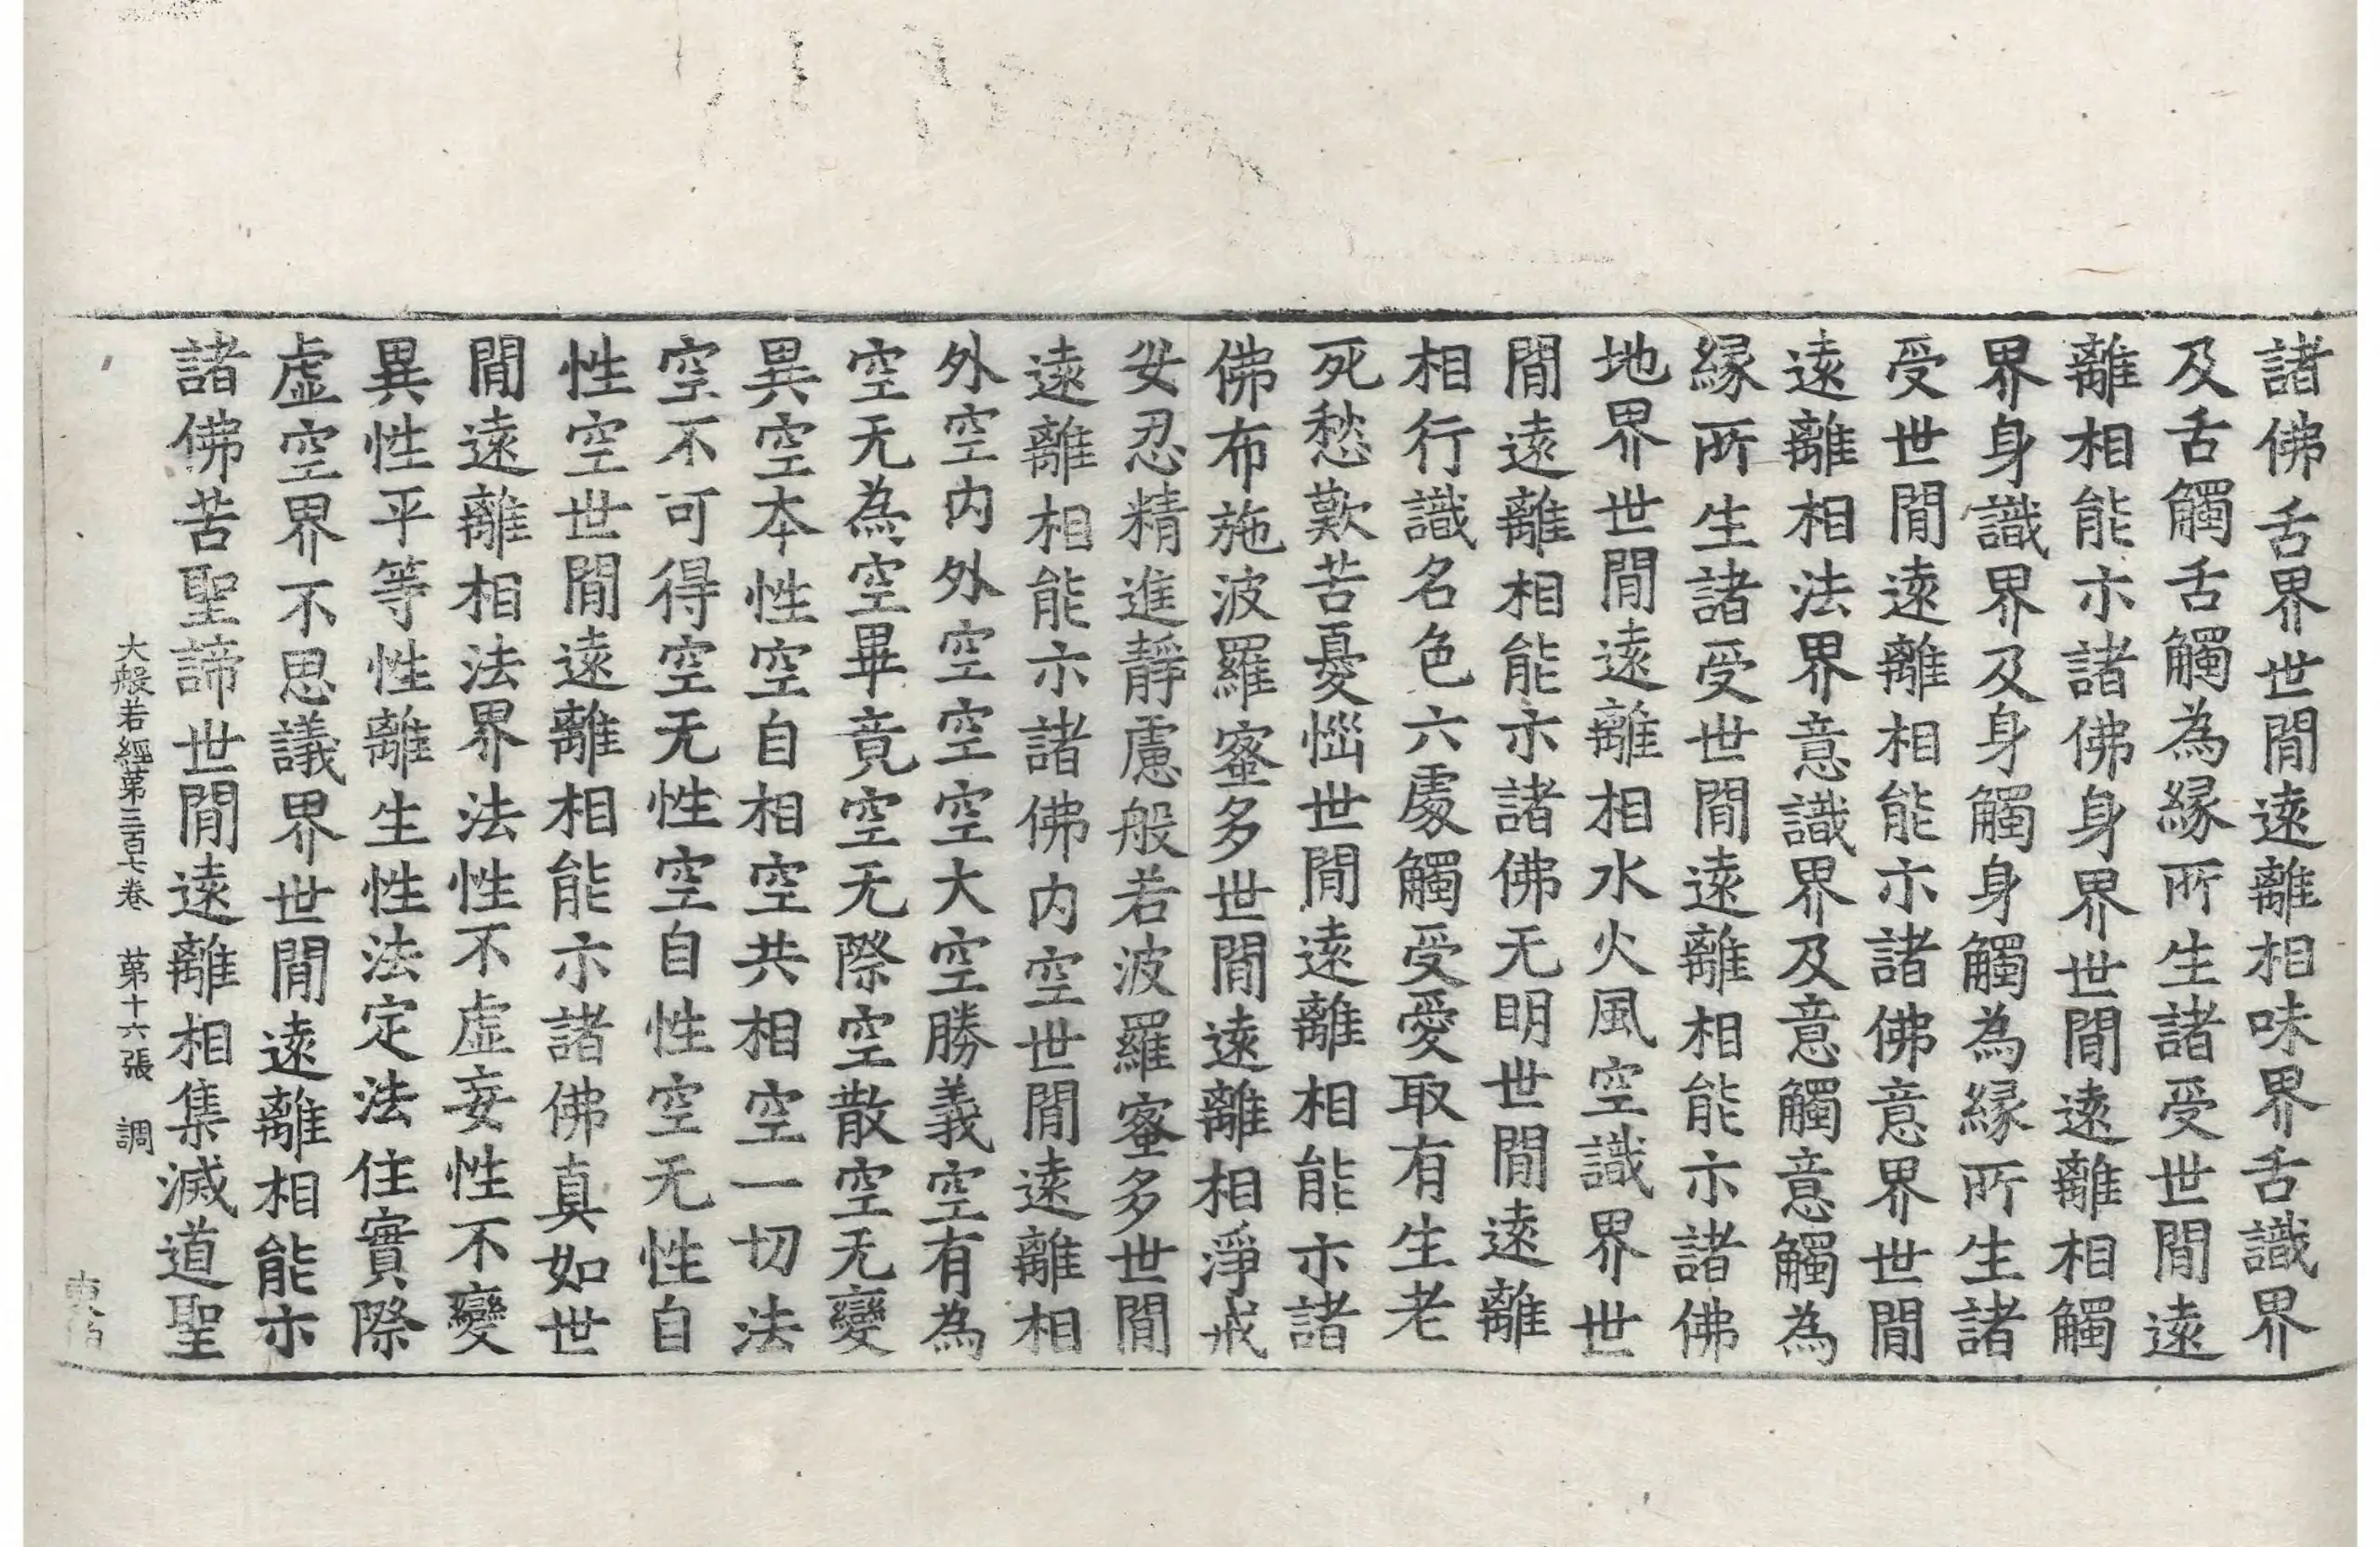 諸佛舌界世閒遠離相味界舌識界
及舌觸舌觸為縁所生諸受世閒遠
離相能示諸佛身界世閒遠離相觸
界身識界及身觸身觸為縁所生諸
受世閒遠離相能示諸佛意界世閒
遠離相法界意識界及意觸意觸為
縁所生諸受世閒遠離相能示諸佛
地界世閒遠離相水火風空識界世
閒遠離相能示諸佛无明世閒遠離
相行識名色六處觸受愛取有生老
死愁歎苦憂惱世閒遠離相能示諸
佛布施波羅蜜多世閒遠離相淨戒
安忍精進靜慮般若波羅蜜多世閒
遠離相能示諸佛内空世閒遠離相
外空内外空空空大空勝義空有為
空无為空畢竟空无際空散空无變
異空本性空自相空共相空一切法
空不可得空无性空自性空无性自
性空世閒遠離相能示諸佛真如世
閒遠離相法界法性不虛妄性不變
異性平等性離生性法定法住實際
虛空界不思議界世閒遠離相能示
諸佛苦聖諦世閒遠離相集滅道聖
大般若經第三百七卷 第十六張 調